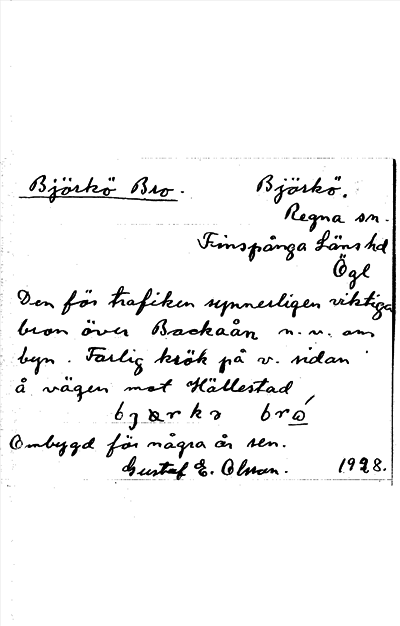 Björkö Bro. Björkö.
Regna sn.
Finspånga Läns hd
Ögl
Den för trafiken synnerligen viktiga
bron över Backaån n. v. om
byn. Farlig krök på v. sidan
å vägen mot Hällestad
bro
Ombygd för några år sen.
Gustaf E. Olsson. 1928.